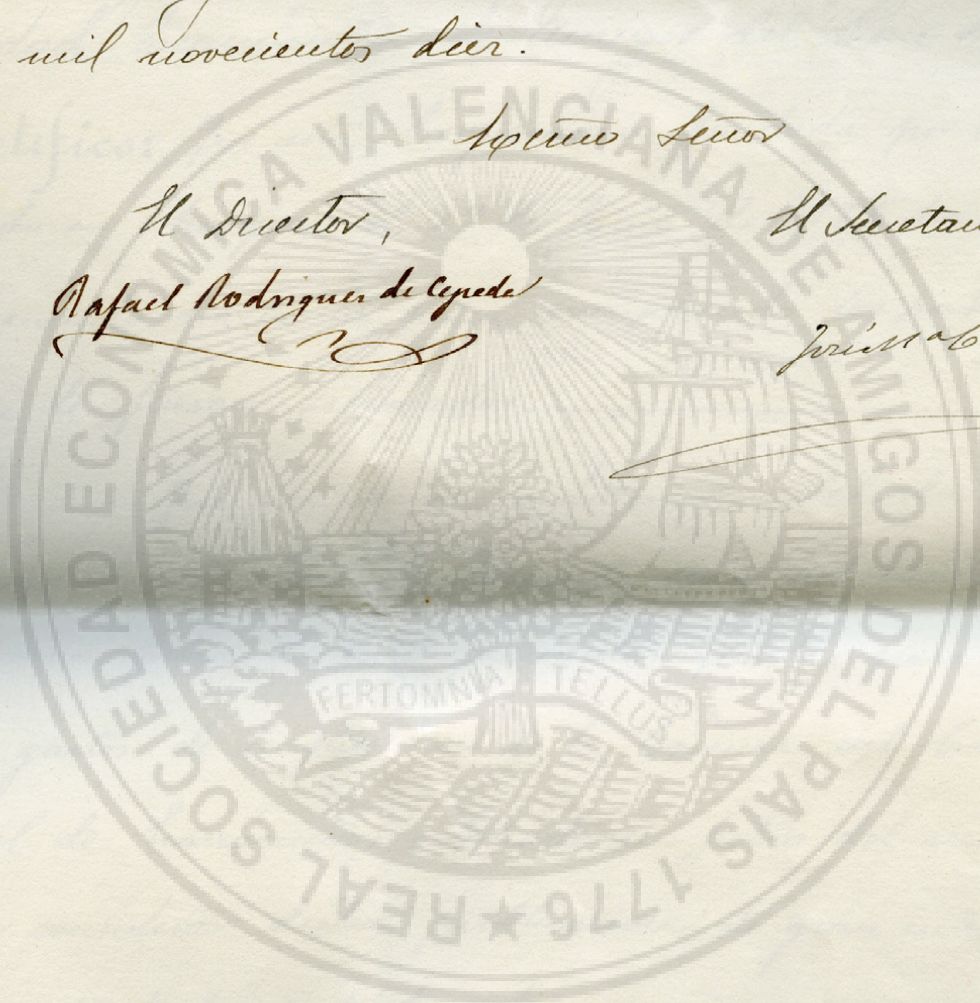 mil novecientos diez.
Excmo Señor
El Director,
El Secretar
Rafael Rodriguez de Cepeda
José Mª
REAL SOCIEDAD ECONOMICA VALENCIANA DE AMIGOS DEL PAIS 1776
FERT OMNIA TELLUS